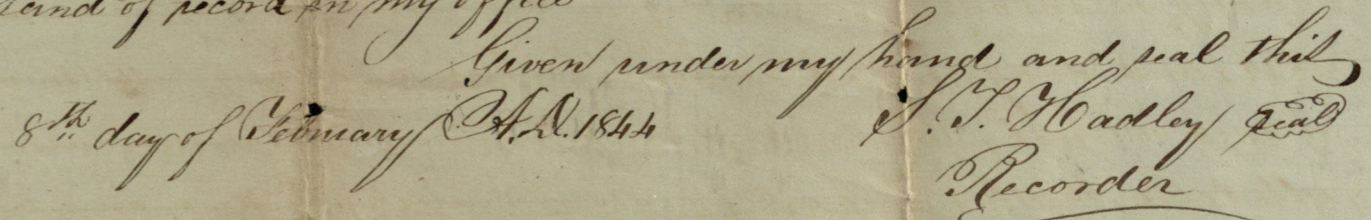 stand of record in my office
Given under my hand and seal this
8th day of February A.D. 1844 S. T. Hadley seal
Recorder